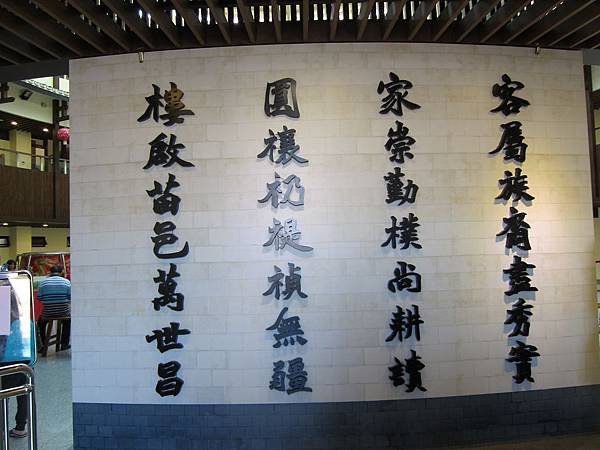 客屬族裔盡秀實
家崇勤樸尚耕讀
圓禳礽禔禎無疆
樓啟苗邑萬世昌